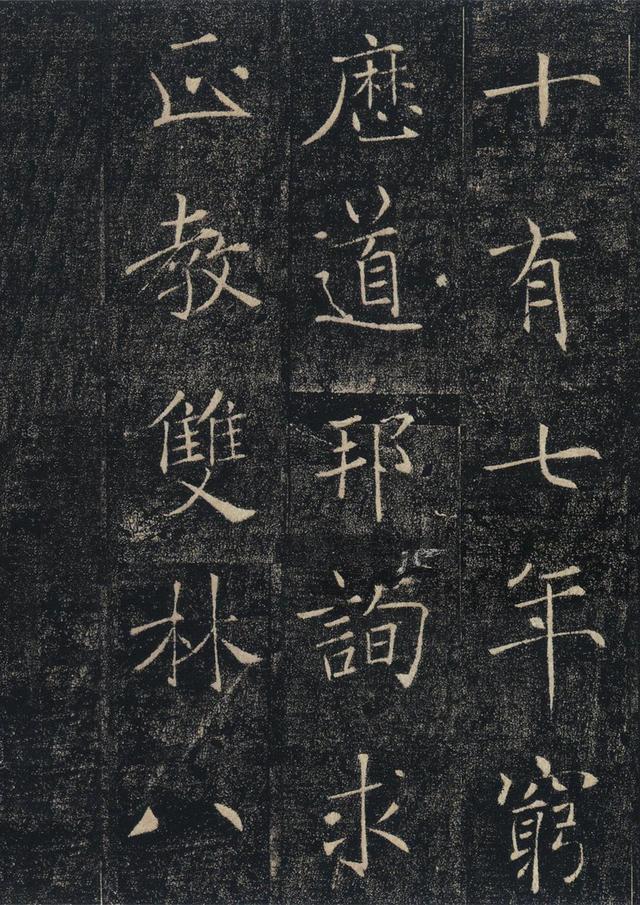 十有七年窮
歷道邦詢求
正教雙林八